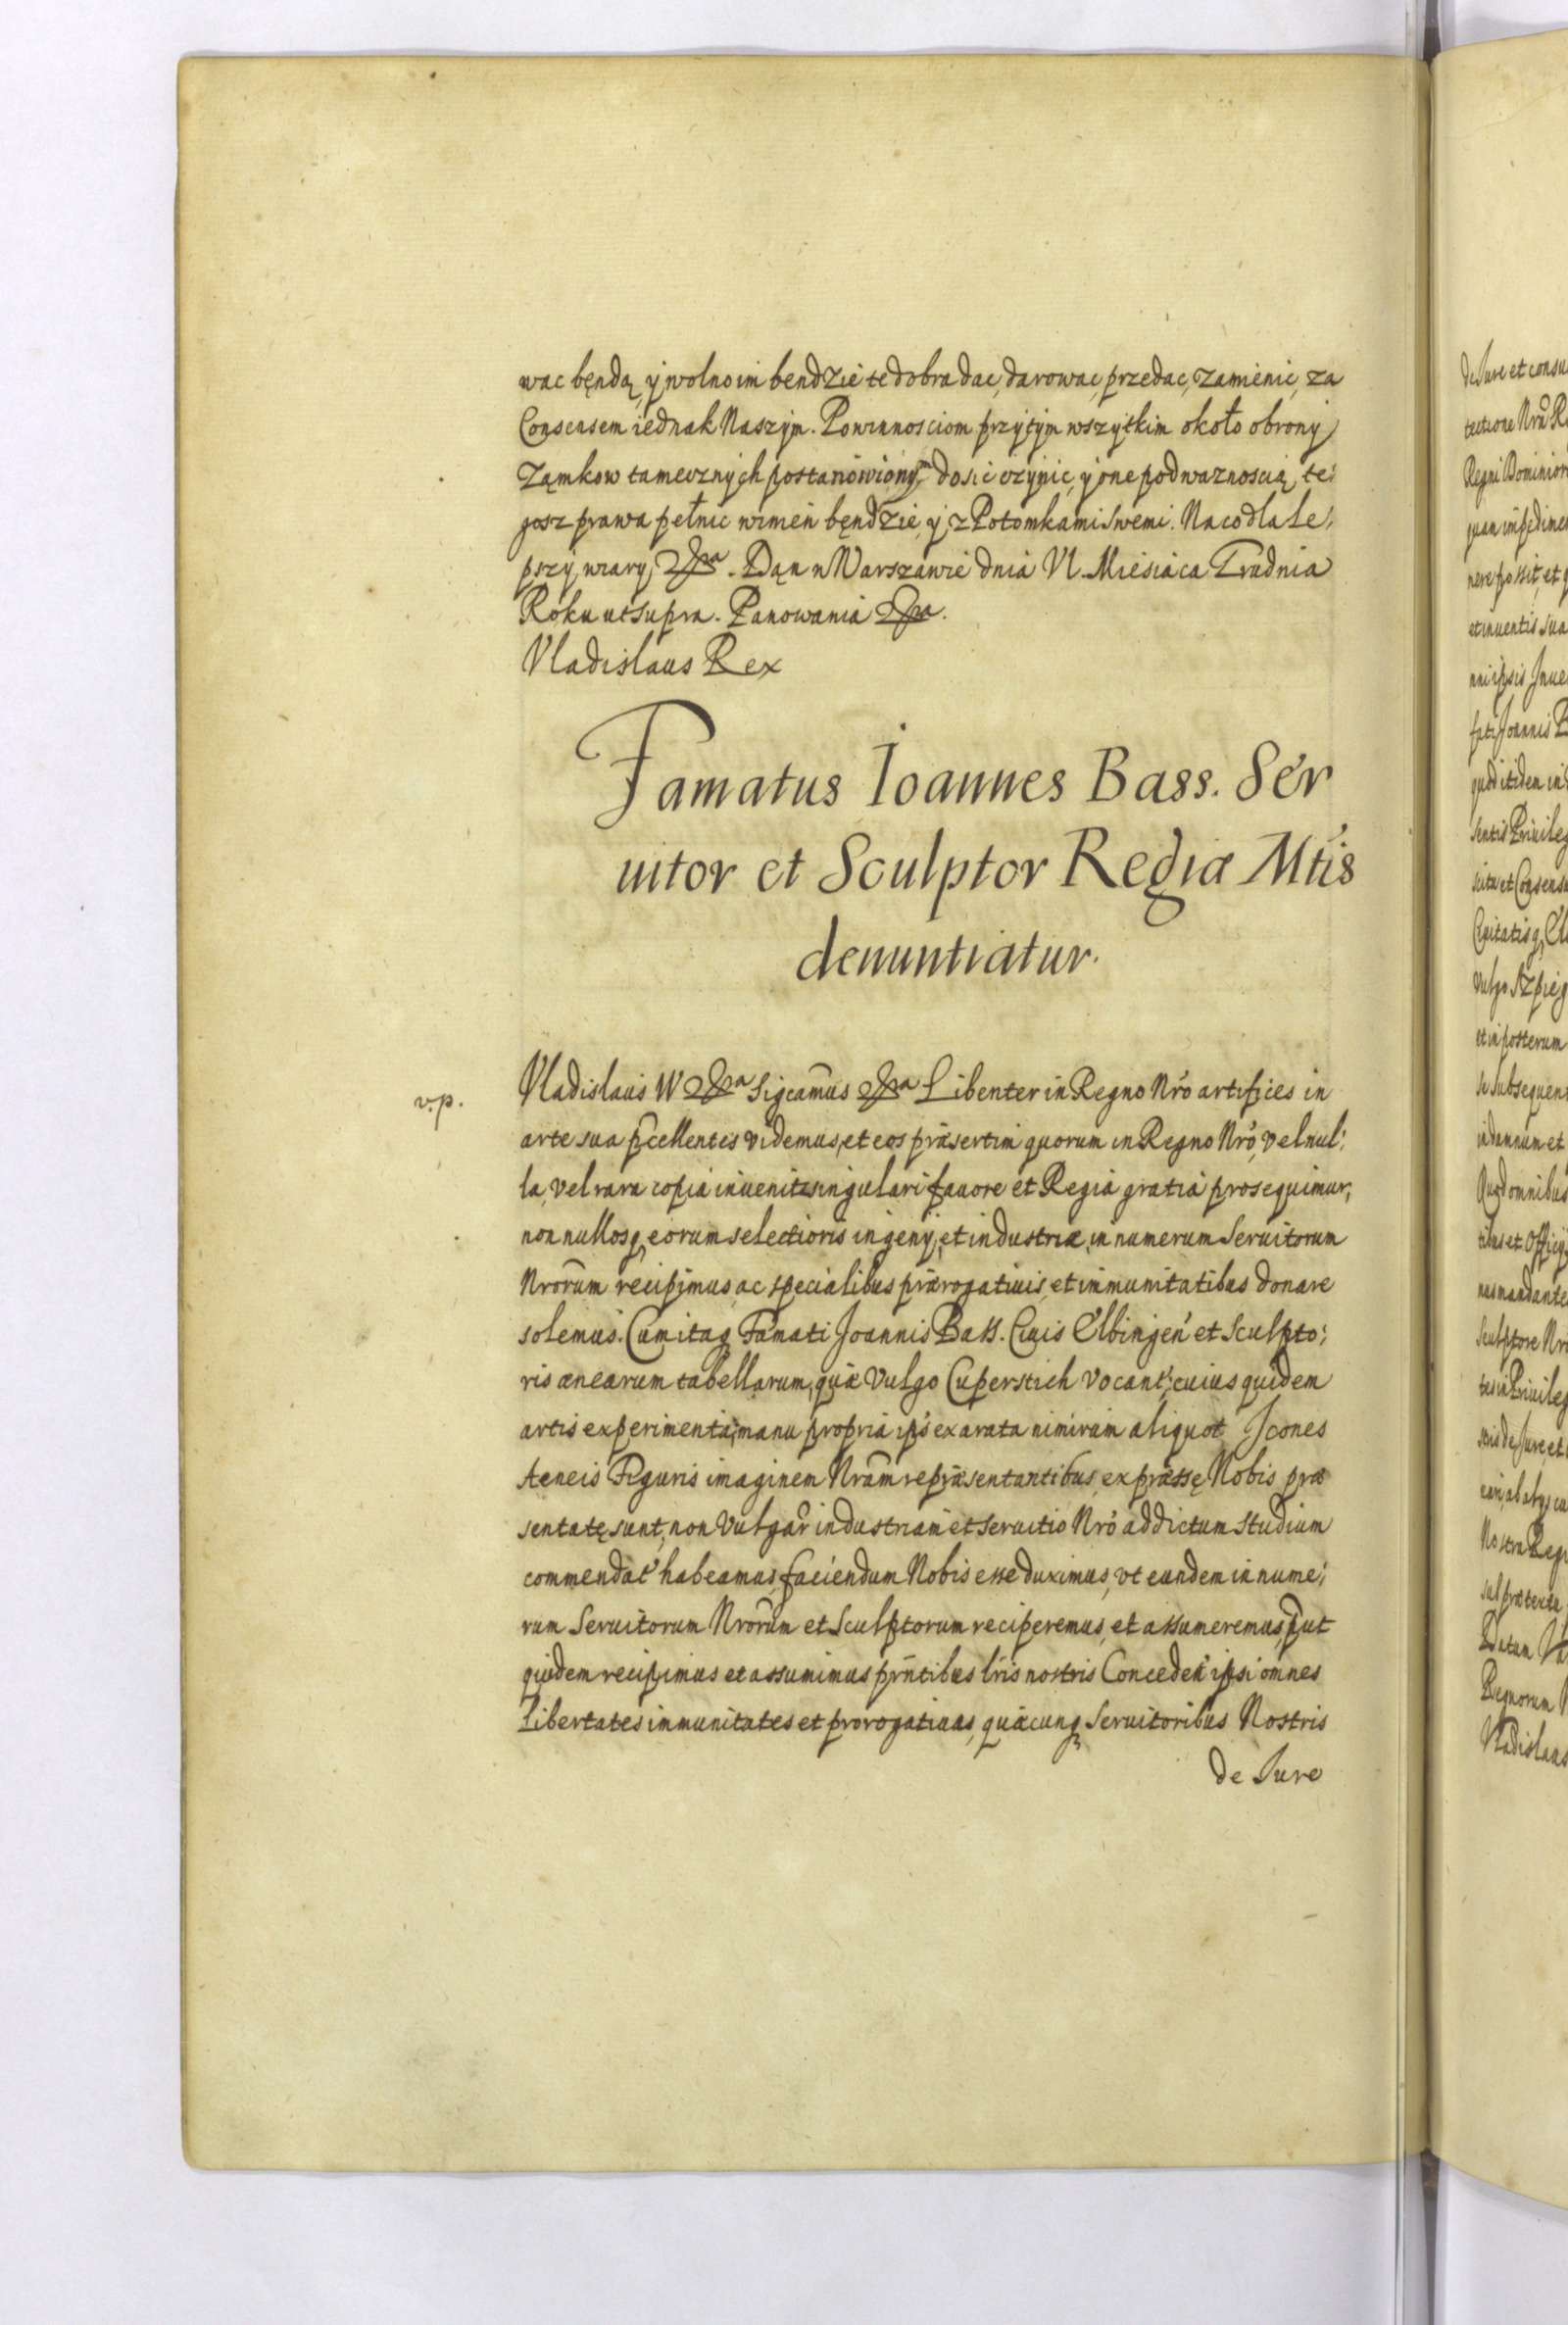 wac będą, ÿ wolno im bendzie te dobra dac, darowac, przedac, zamienic, za
Consensem iednak Naszÿm. Powinnosciom przÿtÿm wszÿtkim około obronÿ
Zamkow tamecznÿch postanowionÿm dosic czÿnic, ÿ one pod waznoscią te:
gosz prawa pełnic wimen będzie, ÿ z Potomkami Swemi. Na co dla Le:
pszÿ wiarÿ &ra. Dan w Warszawie dnia VI. Miesiaca Grudnia
Roku ut supra. Panowania &ra.
Vladislaus Rex
Famatus Ioannes Bass. Ser
uitor et Sculptor Regiæ Mtis
denuntiatur.
v.p.
Vladislaus IV &ra Sigcamus &ra Libenter in Regno Nro artifices in
arte sua pcellentes videmus, et eos præsertim quorum in Regno Nro, vel nul:
la, vel rara copia inuenit, singulari fauore et Regia gratia prosequimur,
non nullosq eorum selectioris ingenÿ, et industriæ, in numerum Seruitorum
Nrorum recipimus, ac specialibus prærogatiuis, et immunitatibus donare
solemus. Cum itaq Famati Joannis Bass. Ciuis Elbingen et Sculpto:
ris ænearum tabellarum, quæ vulgo Cuperstich vocant, cuius quidem
artis experimenta, manu propria ips exarata nimirum aliquot Jcones
Aeneis Figuris imaginem Nram repræsentantibus, expræssę Nobis præ
sentatę sunt, non vulgar industriam et seruitio Nro addictum studium
commendat habeamus, faciendum Nobis esse duximus, vt eundem in nume:
rum Seruitorum Nrorum et Sculptorum reciperemus, et assumeremus, put
quidem recipimus et assumimus prntibus lris nostris Conceden ipsi omnes
libertates immunitates et prerogatiuas, quæcunq Seruitoribus Nostris
de Jure
de Jure et consu
tectione Nra R
Regni Dominior
quan impedimen
nere possit, et q
et inuentis sua
nni ipsis Jnue
fati Joannis B
quod itidem in
sentis Priuileg
scitu et Consensu
Ciuitatisq El
vulgo Szpieg
et in posterum
se subsequen
in damnum et
Quod omnibus
tibus et Officÿ
nus mandante
Sculptore Nro
tes in Priuileg
Nostra Reg
sub prætextu
Datum Va
Regnorum N
Vladislaus